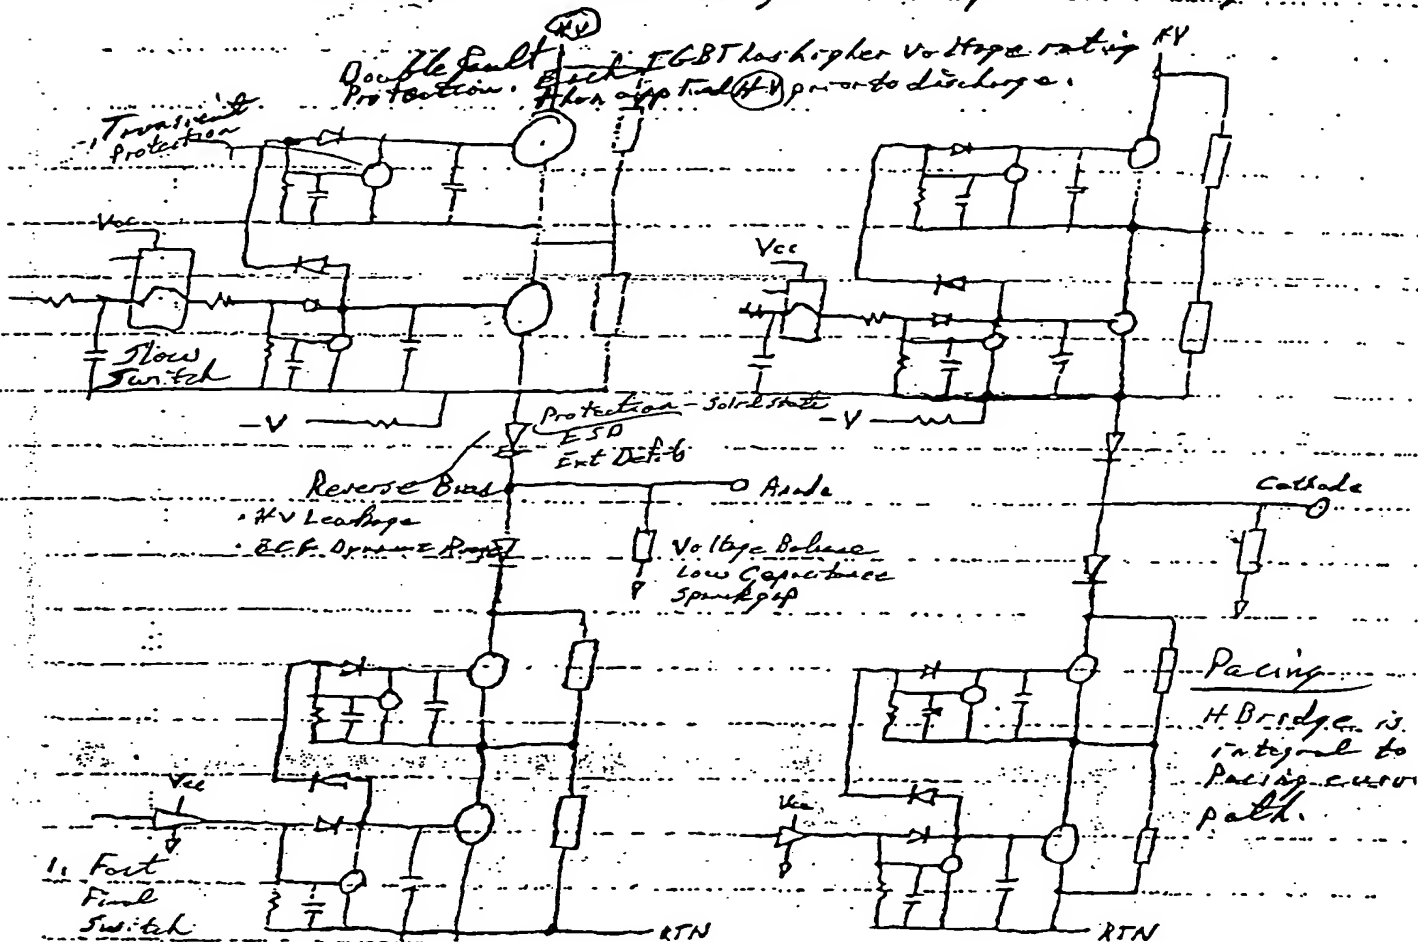 HV
HV
Double fault
Protection. Each IGBT has higher voltage rating
than applied HV prior to discharge.
Transient
Protection
Vcc
Vcc
Slow
Switch
-V
-V
Protection - Solid State
ESD
Ext Defib
Reverse Bias
• HV Leakage
• Dynamic Range
Anode
Cathode
Voltage Balance
Low Capacitance
Sparkgap
Pacing
H Bridge is
integral to
Pacing
path.
Vcc
Vcc
1. Fast
Final
Switch
RTN
RTN